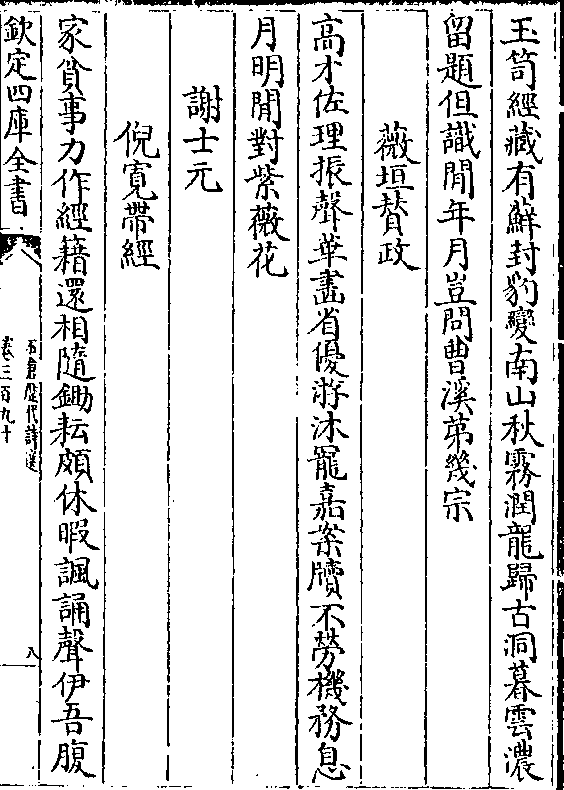 玉笥經藏有鮮封豹變南山秋霧潤龍歸古洞暮雲濃
留題但識開年月豈問曹溪第幾宗
薇垣賛政
高才佐理振聲華畫省優游沐寵嘉案牘不勞機務息
月明閒對紫薇花
謝士元
倪寬帶經
家貧事力作經籍還相隨鋤耘頗休暇諷誦聲伊吾腹
欽定四庫全書
石倉歷代詩選
卷三百九十
八